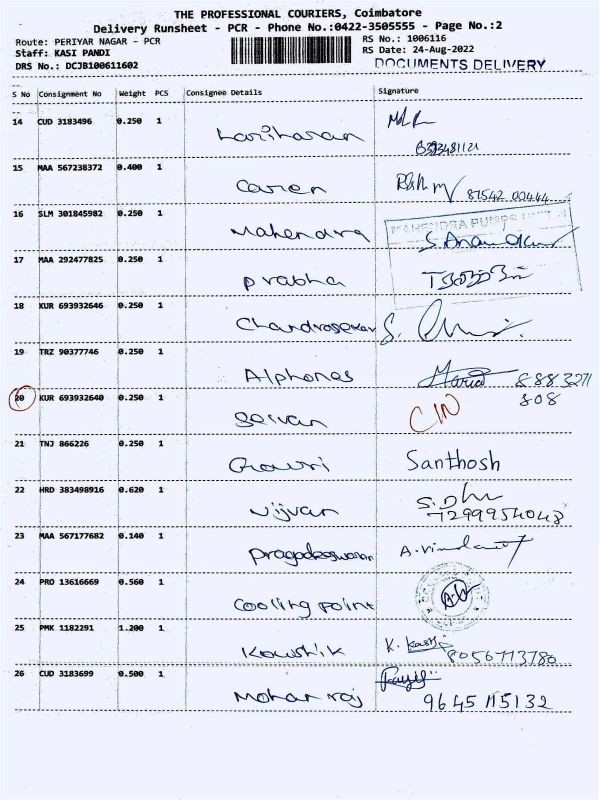 THE PROFESSIONAL COURIERS, Coimbatore
Delivery Runsheet - PCR - Phone No.:0422-3505555 - Page No.:2
Route: PERIYAR NAGAR - PCR
RS No.: 1006116
Staff: KASI PANDI
RS Date: 24-Aug-2022
DRS No.: DCJB100611602
DOCUMENTS DELIVERY
S No Consignment No Weight PCS Consignee Details Signature
14 CUD 3183496 0.250 1
Hariharan
15 MAA 567238372 0.400 1
Caren 87542 00444
16 SLM 301845982 0.250 1
MAHENDRA PUMPS
Mahendra
17 MAA 292477825 0.250 1
Prabha
18 KUR 693932646 0.250 1
Chandrasekar S.
19 TRZ 90377746 0.250 1
Alphones 8883271
808
20 KUR 693932640 0.250 1
CIN
21 TNJ 866226 0.250 1
Gowri Santhosh
22 HRD 383498916 0.620 1
7299954048
23 MAA 567177682 0.140 1
24 PRO 13616669 0.560 1
Cooling point
25 PMK 1182291 1.200 1
Kowshik 8056713780
26 CUD 3183699 0.500 1
Mohan raj 9645115132